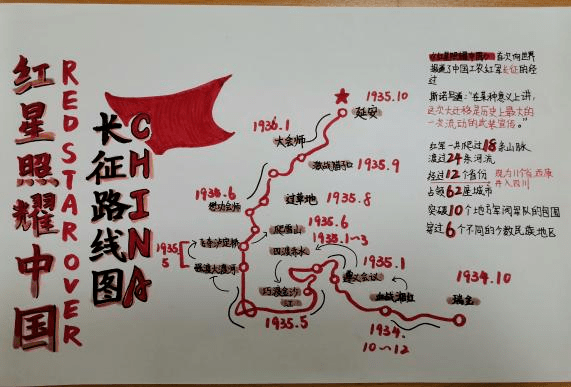 红星照耀中国
RED STAR OVER
CHINA
长征路线图
1935.10
延安
1936.1
大会师
激战腊子口
1935.9
过草地
1935.8
1935.6
懋功会师
爬雪山
1935.6
飞夺泸定桥
强渡大渡河
1935.
5
四渡赤水
1935.1~3
巧渡金沙
江
1935.5
遵义会议
1935.1
血战湘江
1934.
10~12
瑞金
1934.10
《红星照耀中国》首次向世界
报道了中国工农红军长征的经
过
斯诺写道:“在某种意义上讲,
这次大迁移是历史上最大的
一次流动的武装宣传。”
红军一共爬过18条山脉
渡过24条河流
经过12个省份
现为11个省,西康
并入四川
占领62座城市
突破10个地方军阀军队的包围
穿过6个不同的少数民族地区